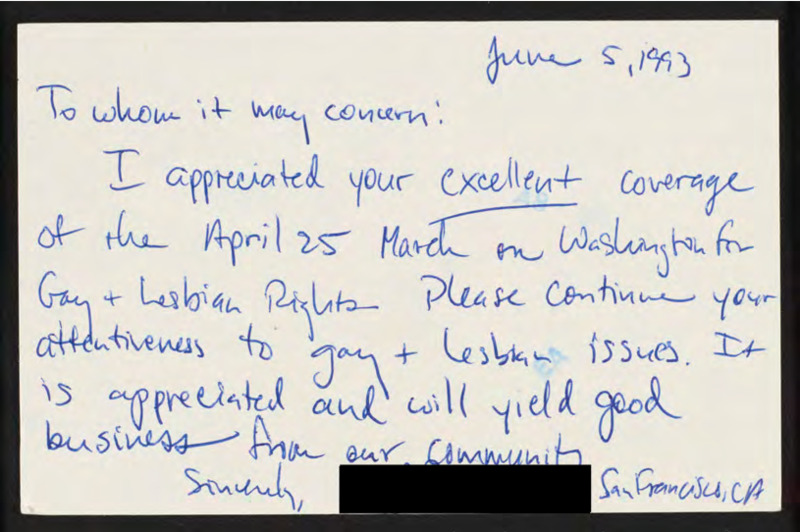 June 5, 1993
To whom it may concern:
I appreciated your excellent coverage
of the April 25 March on Washington for
Gay + Lesbian Rights. Please continue your
attentiveness to gay + lesbian issues. It
is appreciated and will yield good
business from our community
Sincerely, San Francisco, CA